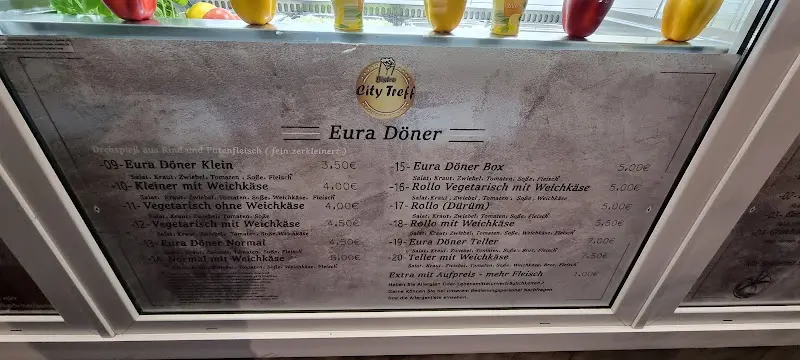 Bistro
City Treff
Eura Döner
Drehspieß aus Rind und Putenfleisch ( fein zerkleinert )
-09- Eura Döner Klein 3,50€
Salat, Kraut, Zwiebel, Tomaten, Soße, Fleisch
-10- Kleiner mit Weichkäse 4,00€
Salat, Kraut, Zwiebel, Tomaten, Soße, Weichkäse, Fleisch
-11- Vegetarisch ohne Weichkäse 4,00€
Salat, Kraut, Zwiebel, Tomaten, Soße
-12- Vegetarisch mit Weichkäse 4,50€
Salat, Kraut, Zwiebel, Tomaten, Soße, Weichkäse
-13- Eura Döner Normal 4,50€
Salat, Kraut, Zwiebel, Tomaten, Soße, Fleisch
-14- Normal mit Weichkäse 5,00€
Salat, Kraut, Zwiebel, Tomaten, Soße, Weichkäse, Fleisch
-15- Eura Döner Box 5,00€
Salat, Kraut, Zwiebel, Tomaten, Soße, Fleisch
-16- Rollo Vegetarisch mit Weichkäse 5,00€
Salat, Kraut, Zwiebel, Tomaten, Soße, Weichkäse
-17- Rollo (Dürüm) 5,00€
Salat, Kraut, Zwiebel, Tomaten, Soße, Fleisch
-18- Rollo mit Weichkäse 5,50€
Salat, Kraut, Zwiebel, Tomaten, Soße, Weichkäse, Fleisch
-19- Eura Döner Teller 7,00€
Salat, Kraut, Zwiebel, Tomaten, Soße, Brot, Fleisch
-20- Teller mit Weichkäse 7,50€
Salat, Kraut, Zwiebel, Tomaten, Soße, Weichkäse, Brot, Fleisch
Extra mit Aufpreis - mehr Fleisch 1,00€
Haben Sie Allergien Oder Lebensmittelunverträglichkeiten?
Gerne Können Sie bei unserem Bedienungspersonal Nachfragen
und die Allergenliste einsehen.